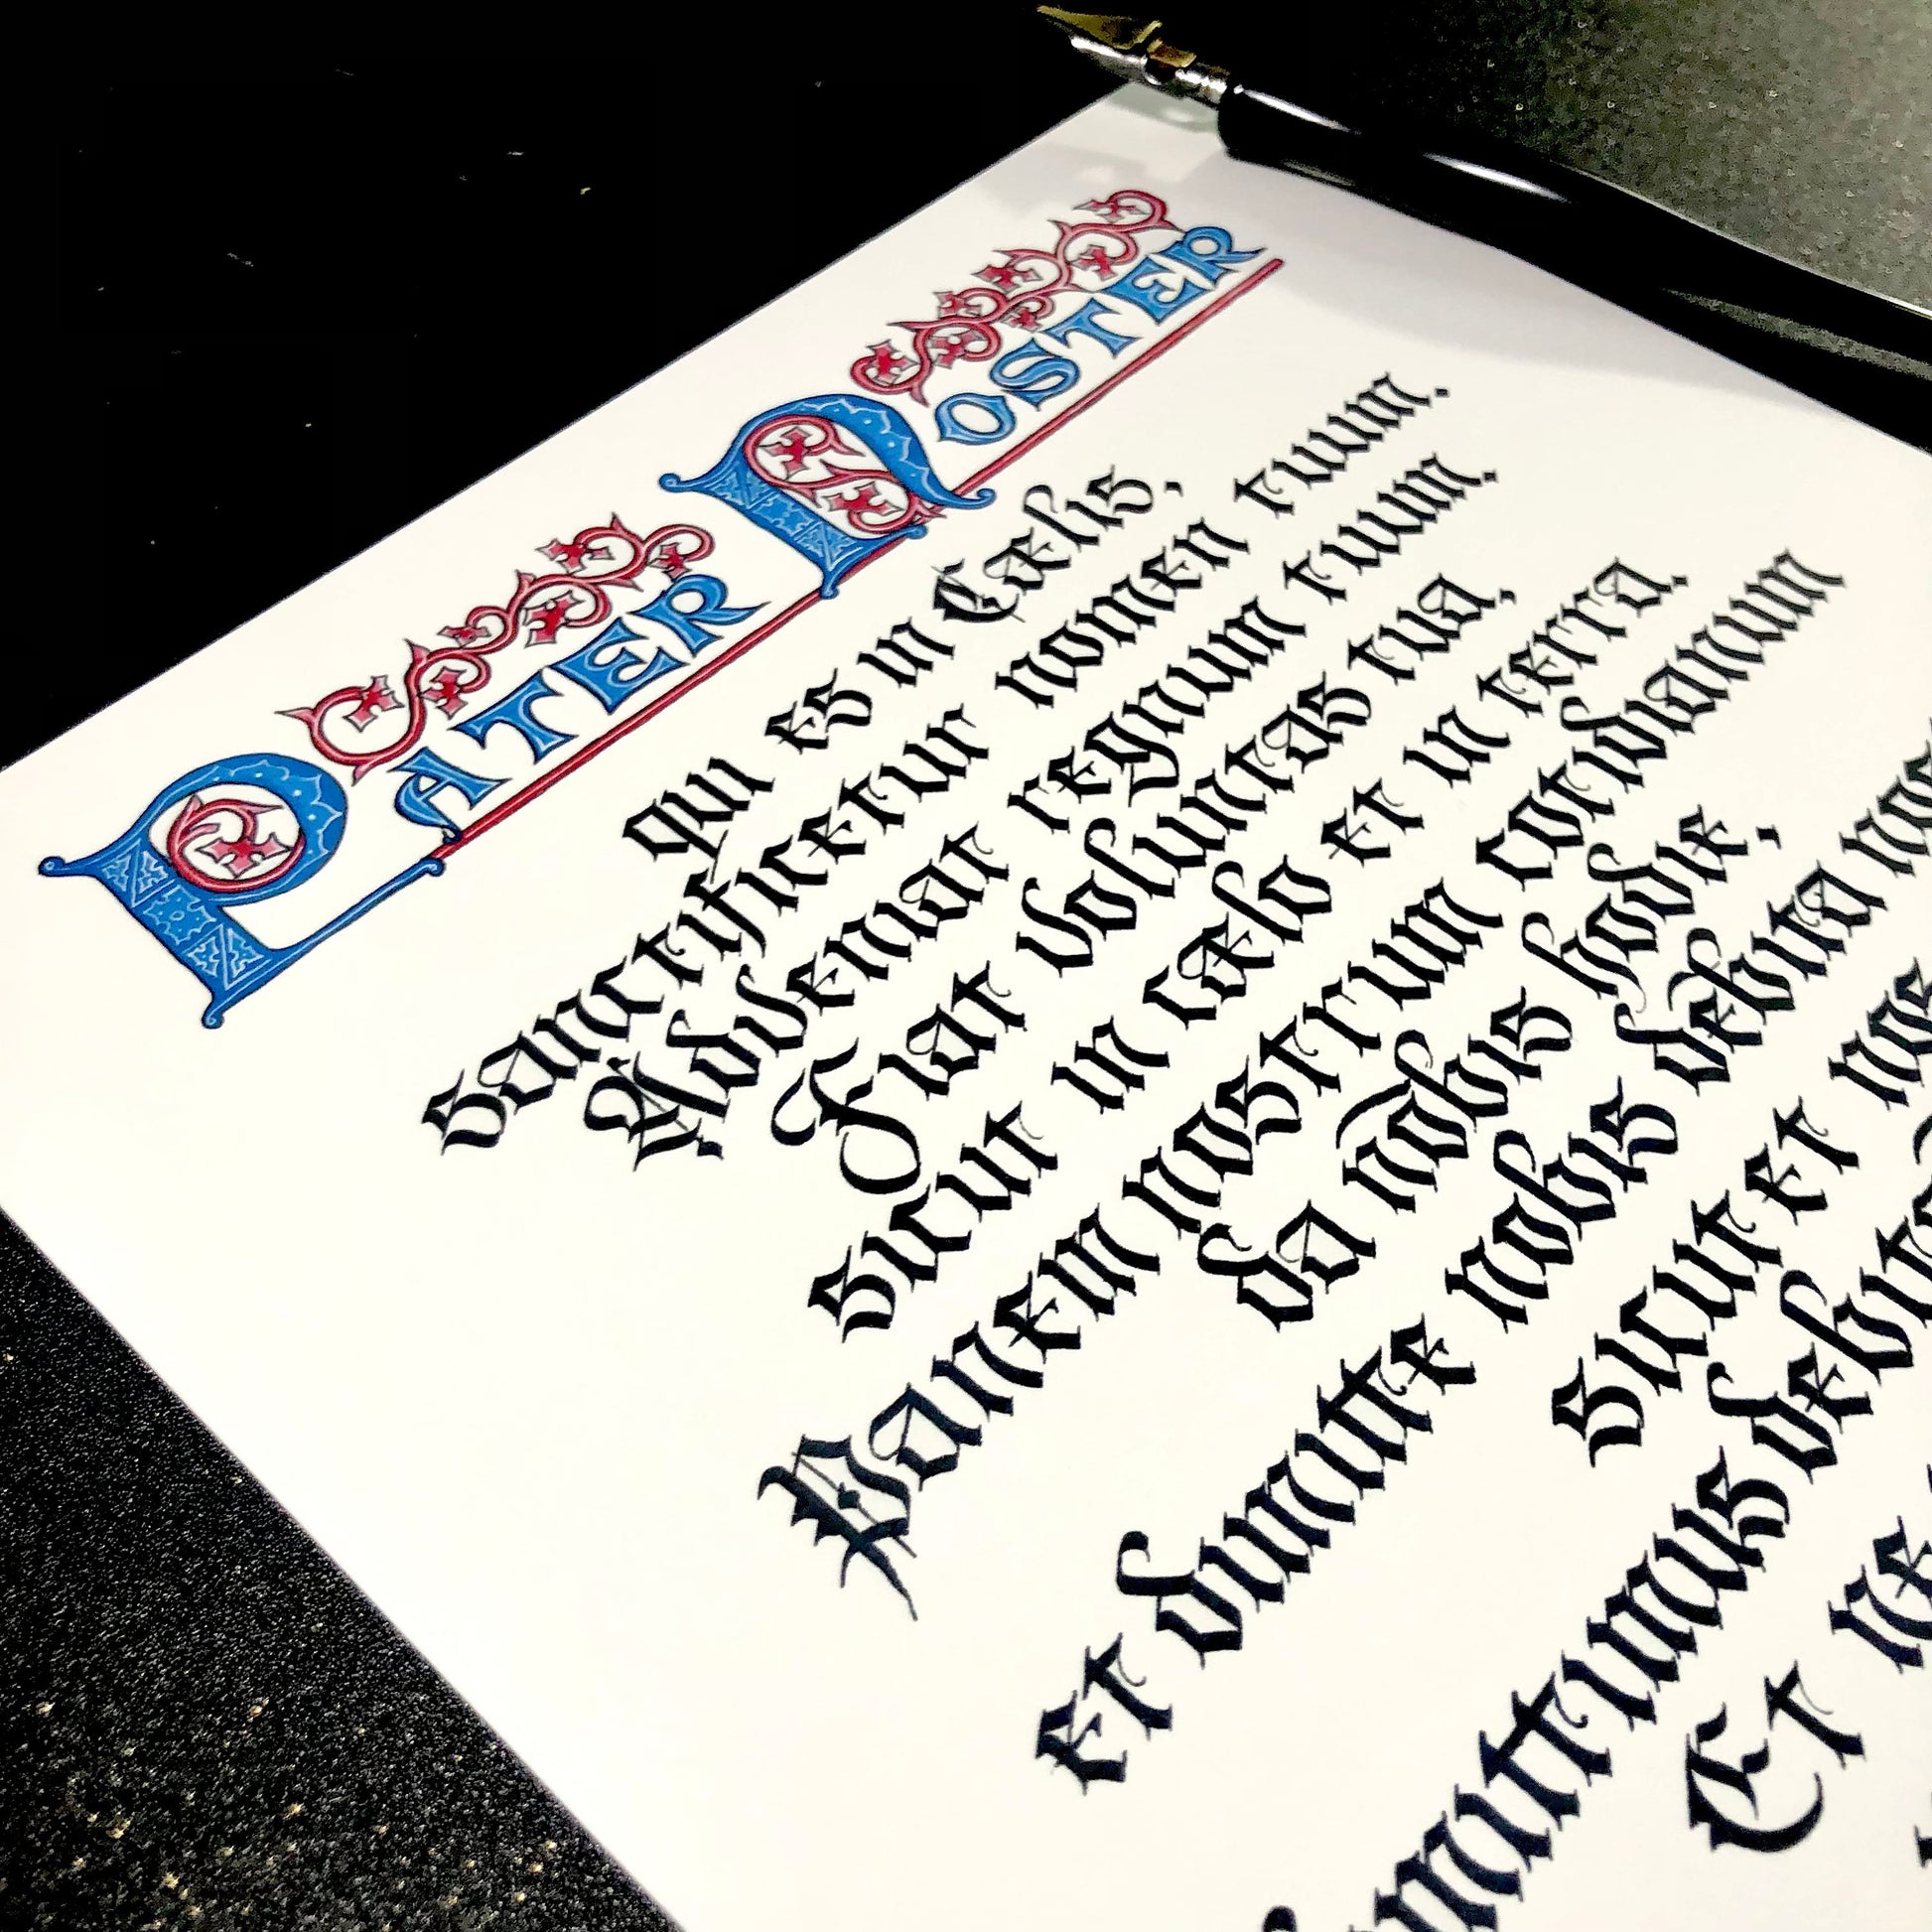 PATER NOSTER
qui es in Cælis,
sanctificetur nomen tuum.
Adveniat regnum tuum.
Fiat voluntas tua,
sicut in cælo et in terra.
Panem nostrum cotidianum
da nobis hodie,
et dimitte nobis debita
sicut et nos
Et ne